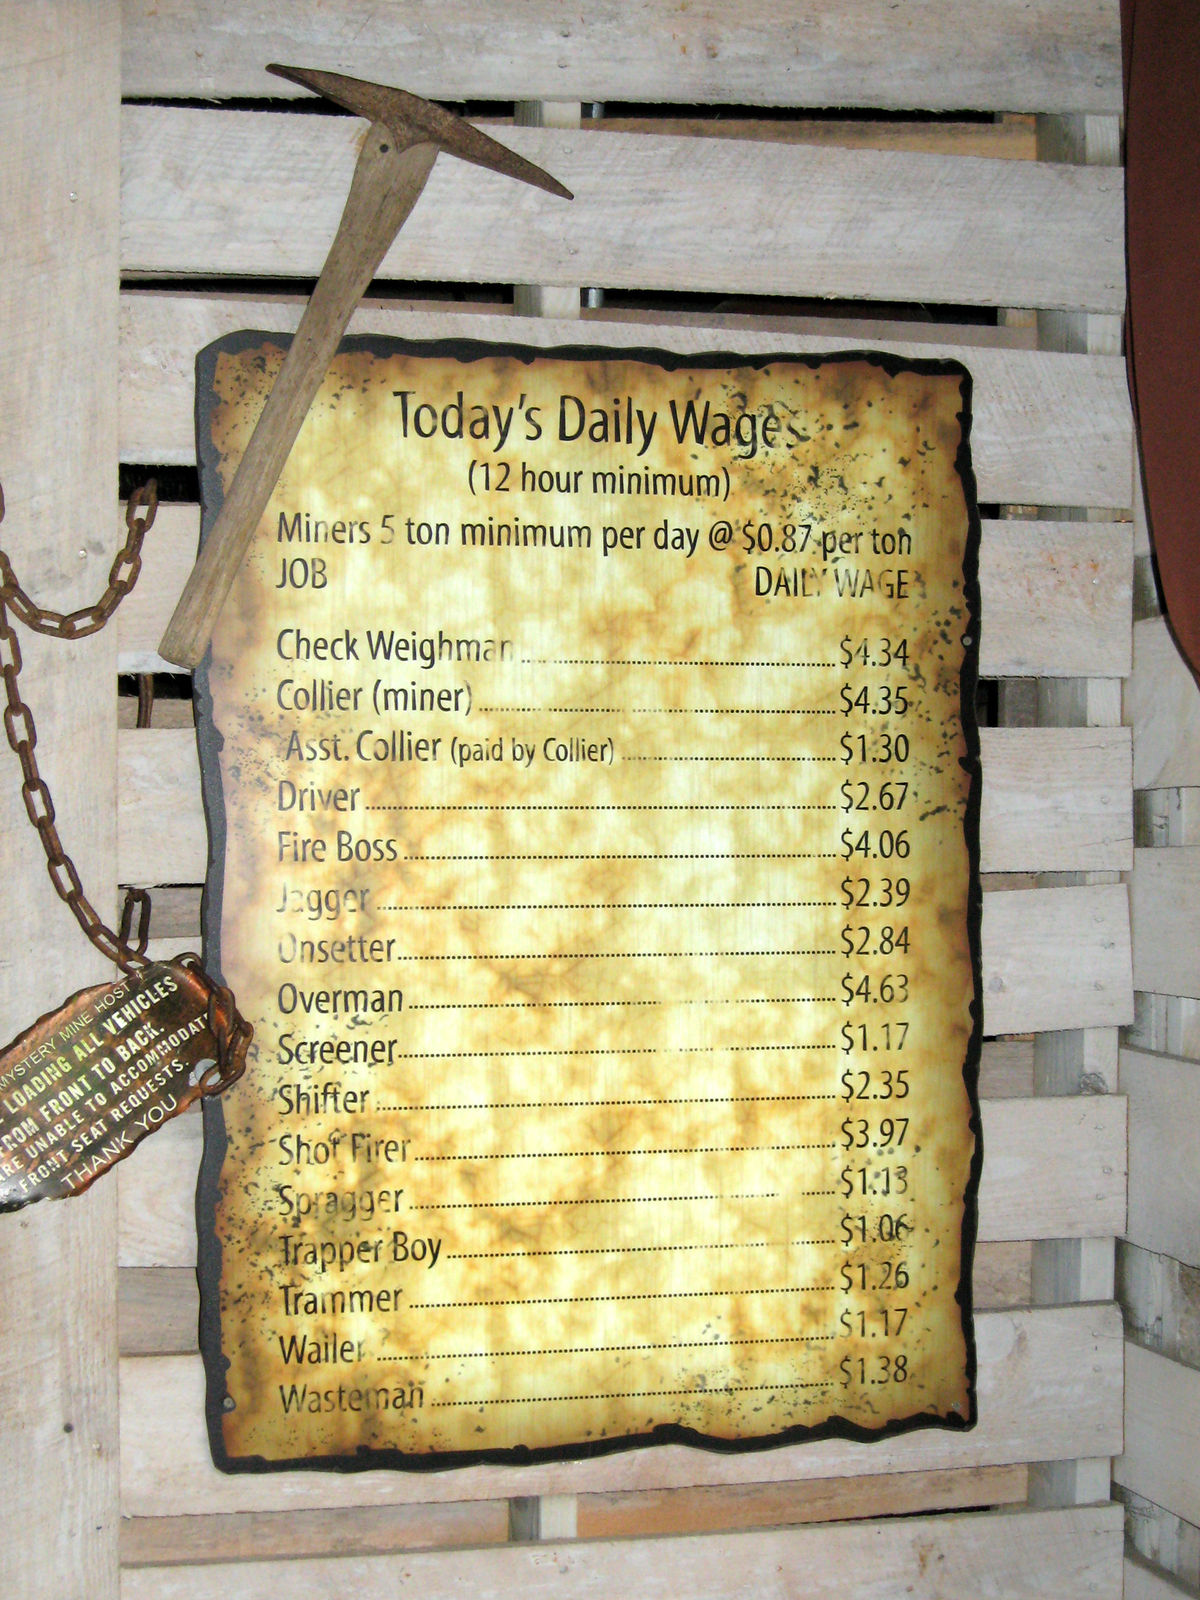 Today's Daily Wages
(12 hour minimum)
Miners 5 ton minimum per day @ $0.87 per ton
JOB DAILY WAGE
Check Weighman $4.34
Collier (miner) $4.35
Asst. Collier (paid by Collier) $1.30
Driver $2.67
Fire Boss $4.06
Jagger $2.39
Onsetter $2.84
Overman $4.63
Screener $1.17
Shifter $2.35
Shot Firer $3.97
Spragger $1.13
Trapper Boy $1.06
Trammer $1.26
Wailer $1.17
Wasteman $1.38
MYSTERY MINE HOST
LOADING ALL VEHICLES
FROM FRONT TO BACK.
UNABLE TO ACCOMMODATE
FRONT SEAT REQUESTS.
THANK YOU